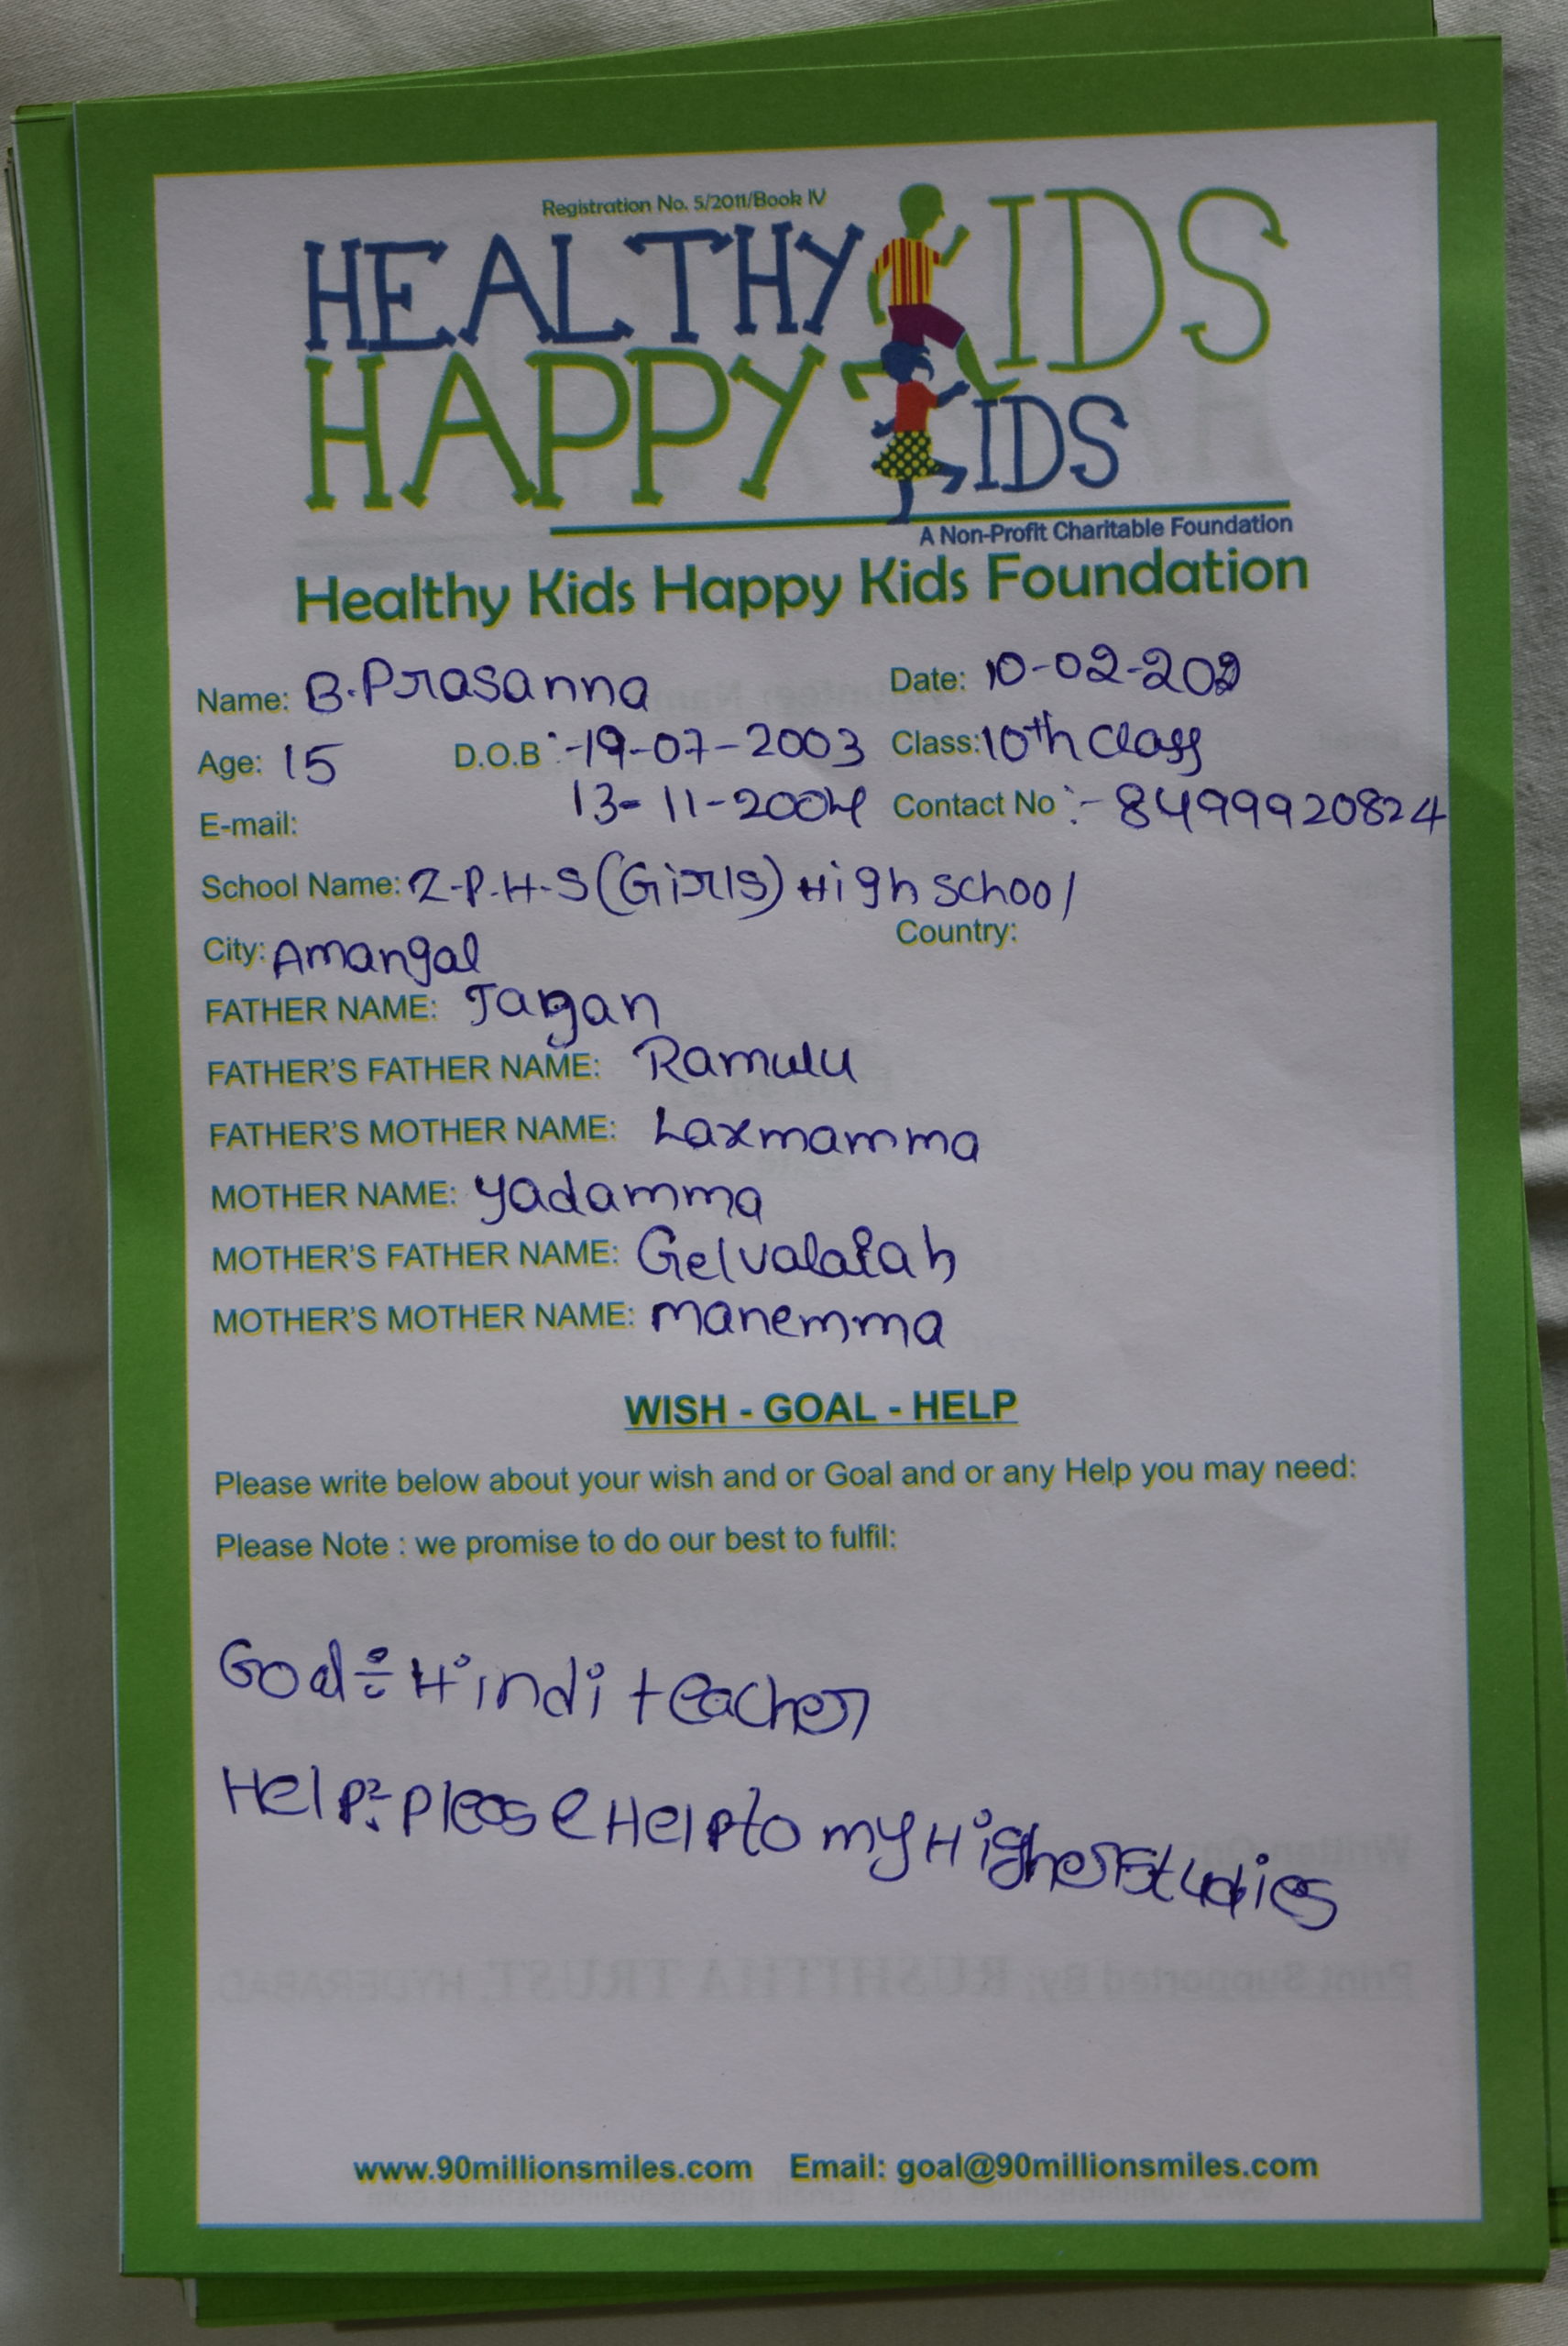 Registration No. 5/2011/Book IV
HEALTHY KIDS
HAPPY KIDS
A Non-Profit Charitable Foundation
Healthy Kids Happy Kids Foundation
Name: B.Prasanna Date: 10-02-202
Age: 15 D.O.B :-19-07-2003 Class: 10th Class
E-mail: 13-11-2004 Contact No :- 8499920824
School Name: Z-P-H-S (Girls) High school
City: Amangal Country:
FATHER NAME: Jagan
FATHER'S FATHER NAME: Ramulu
FATHER'S MOTHER NAME: Laxmamma
MOTHER NAME: yadamma
MOTHER'S FATHER NAME: Gelvalaiah
MOTHER'S MOTHER NAME: manemma
WISH - GOAL - HELP
Please write below about your wish and or Goal and or any Help you may need:
Please Note : we promise to do our best to fulfil:
Goal÷ Hindi teacher
Help:- please Help to my Higher studies
Print Supported By: RUSHITHA TRUST, HYDERABAD.
www.90millionsmiles.com Email: goal@90millionsmiles.com